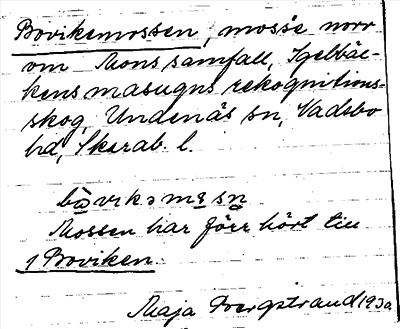 Bovikemossen, mosse norr
om Mons samfall, Igelbäc-
kens masugns rekognitions-
skog, Undenäs sn, Vadsbo
hd, Skarab. l.
Mossen har förr hört till
1 Boviken.
Maja Bergstrand 1930.